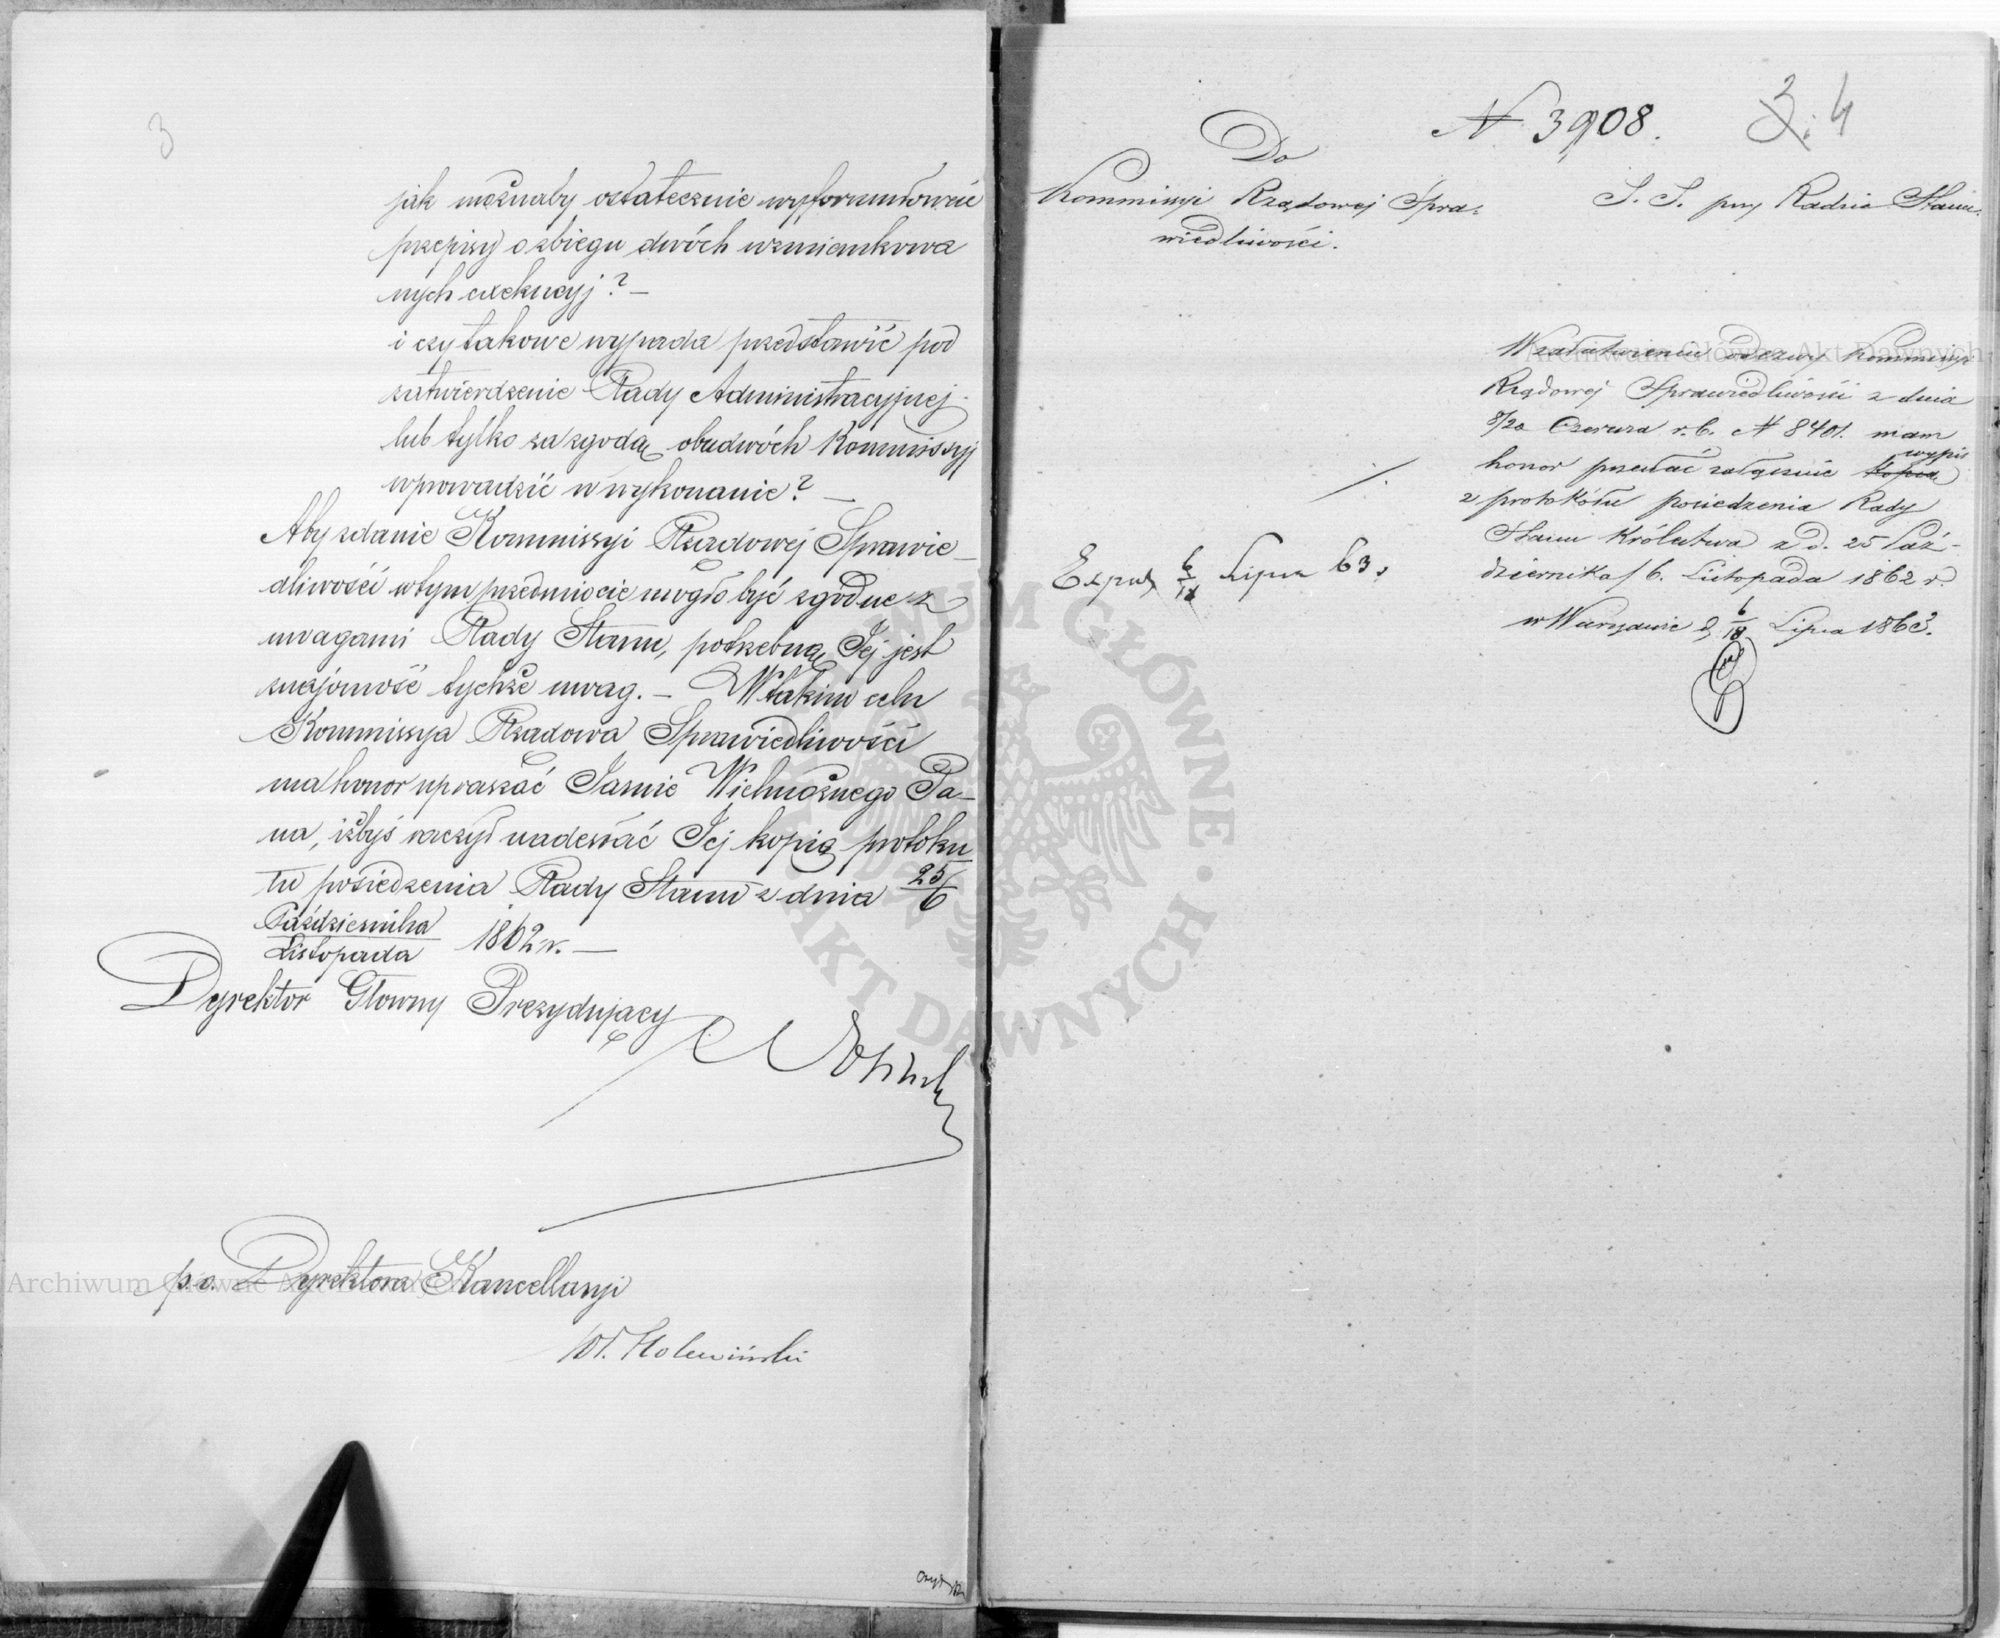 3
jak możnaby ostatecznie wyformułować
przepisy o zbiegu dwóch wzmiankowa
nych exekucyj? —
i czy takowe wypada przedstawić pod
zatwierdzenie Rady Administracyjnej
lub tylko za zgodą obudwóch Kommissyj
wprowadzić w wykonanie? —
Aby zdanie Kommissyi Rządowej Sprawie-
dliwości w tym przedmiocie mogło być zgodne z
uwagami Rady Stanu, potrzebną Jej jest
znajomość tychże uwag. — W takim celu
Kommissya Rządowa Sprawiedliwości
ma honor upraszać Jaśnie Wielmożnego Pa-
na, iżbyś raczył nadesłać Jej kopią protoku
łu posiedzenia Rady Stanu z dnia 25/6
Października/Listopada 1862 r. —
Dyrektor Główny Prezydujący
p.o. Dyrektora Kancellaryi
Wł. Holewiński
N 3908.
3. 4
Do
Kommissyi Rządowej Spra-
wiedliwości.
S. S. przy Radzie Stanu.
W załatwieniu odezwy Kommissyi
Rządowej Sprawiedliwości z dnia
8/20 Czerwca r. b. N 8401. mam
honor przesłać załącznie kopią wypis
z protokółu posiedzenia Rady
Stanu Królestwa z d. 25 Paź-
dziernika/6. Listopada 1862 r.
w Warszawie d. 6/18 Lipca 1863.
Exped. 6/18 Lipca 63.
Archiwum Główne Akt Dawnych
Archiwum Główne Akt Dawnych
ARCHIWUM GŁÓWNE · AKT DAWNYCH ·